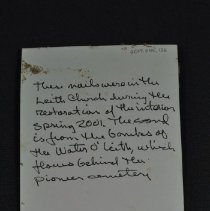 These nails were in the
Leith Church during the
restoration of the interior
Spring 2001. The sand
is from the banks of
the Water O' Leith, which
flows behind the
pioneer cemetery